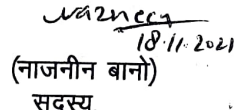 Nazneen
18.11.2021
(नाजनीन बानो)
सदस्य